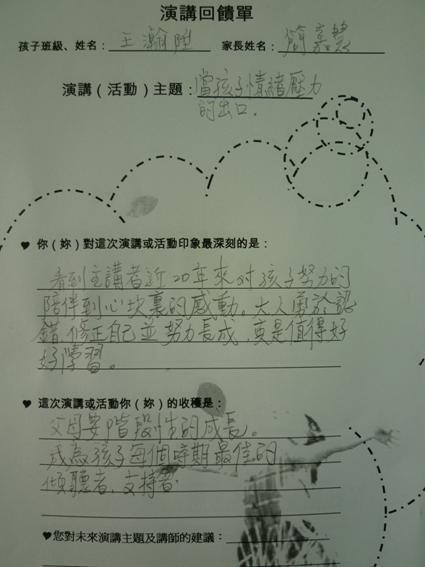 演講回饋單
孩子班級、姓名：王瀚陞 家長姓名：簡嘉慧
演講（活動）主題：當孩子情緒壓力
的出口.
♥ 你（妳）對這次演講或活動印象最深刻的是：
看到主講者近20年來對孩子努力的
陪伴到心坎裏的感動。大人勇於認
錯、修正自己並努力長成，真是值得好
好學習。
♥ 這次演講或活動你（妳）的收穫是：
父母要階段性的成長。
成為孩子每個時期最佳的
傾聽者、支持者.
♥您對未來演講主題及講師的建議：